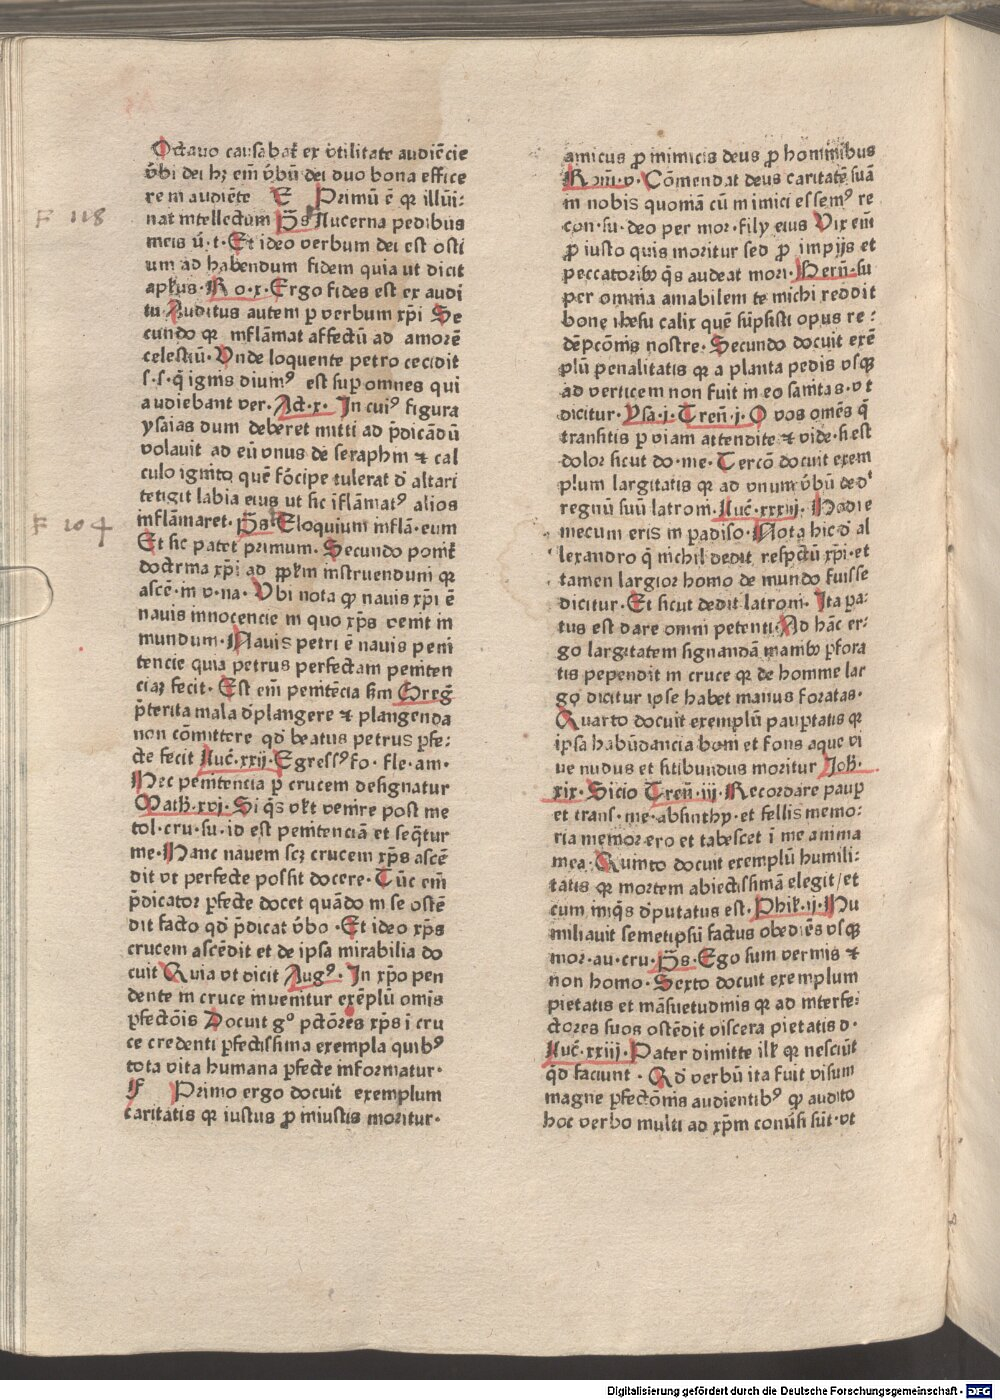 Octauo causabat̃ ex vtilitate audiẽcie
v̉bi dei hȝ em̃ v̉bũ dei duo bona effice
re in audiẽte E Primũ ẽ qꝛ illũi:
F 118
nat intellectum Ps̃ Lucerna pedibus
meis ũ·t·Et ideo verbum dei est osti
um ad habendum fidem quia ut dicit
apl̃us·Ro·x·Ergo fides est ex audi
tu Auditus autem ꝑ verbum xp̃i Se
cundo qꝛ inflãmat affectũ ad amorẽ
celestiũ·Vnde loquente petro cecidit
s·s·q̃ ignis diuinꝰ est sup omnes qui
audiebant ver·Act·x· In cuiꝰ figura
ysaias dum deberet mitti ad p̃dicãdũ
volauit ad eũ vnus de seraphin ⁊ cal
culo ignito quẽ fõcipe tulerat d̉ altari
tetigit labia eius ut sic ĩflãmatꝰ alios
F 104
inflãmaret·Ps̃·Eloquium inflã·eum
Et sic patet primum·Secundo ponit̃
doctrina xp̃i ad pp̃lm instruendum qꝛ
ascẽ·in v·na·Vbi nota ꝙ nauis xp̃i ẽ
nauis innocencie in quo xp̃s venit in
mundum·Nauis petri ẽ nauis peni
tencie quia petrus perfectam peniten
ciaȝ fecit·Est em̃ penitẽcia sm̃ Greg̃
p̃terita mala d̉plangere ⁊ plangenda
non cõmittere qd̉ beatus petrus ꝑfe:
cte fecit Luc̃·xxij·Egressꝰfo·fle·am·
Hec penitencia ꝑ crucem designatur
Math̃·xvj·Si q̃s vl̃t venire post me
tol·cru·su·id est penitenciã et seq̃tur
me·Hanc nauem scȝ crucem xp̃s ascẽ
dit vt perfecte possit docere·Tũc em̃
p̃dicator ꝑfecte docet quãdo in se ostẽ
dit facto qd̉ p̃dicat v̉bo·Et ideo xp̃s
crucem ascẽdit et de ipsa mirabilia do
cuit Quia vt dicit Augꝰ·In xp̃o pen
dente in cruce inuenitur exẽplũ omĩs
ꝑfectõis Docuit g° pctõres xp̃s i cru
ce credenti ꝑfectissima exempla quibꝰ
tota vita humana ꝑfecte informatur·
F Primo ergo docuit exemplum
caritatis qꝛ iustus ꝓ iniustis moritur·
amicus ꝓ inimicis deus ꝓ hominibus
Rom̃·v·Cõmendat deus caritatẽ suã
in nobis quoniã cũ inimici essemꝰ re
con·su·deo per mor·fily eius Vix em̃
ꝓ iusto quis moritur sed ꝓ impijs et
peccatoribȝ q̃s audeat mori·Bern̄·su
per omnia amabilem te michi reddit
bone ihesu calix quẽ sũpsisti opus re:
dẽpcõnis nostre·Secundo docuit exẽ
plũ penalitatis qꝛ a planta pedis vsqꝫ
ad verticem non fuit in eo sanitas·vt
dicitur·Ysa·j·Tren̄·j·O vos omẽs q̃
transitis ꝑ viam attendite ⁊ vide·si est
dolor sicut do·me·Tercõ docuit exem
plum largitatis qꝛ ad vnum v̉bũ dedꝰ
regnũ suũ latroni·Luc̃·xxxiij·Hodie
mecum eris in padiso·Nota hic d̉ al
lexandro q̃ nichil dedit respctũ xp̃i·et
tamen largior homo de mundo fuisse
dicitur·Et sicut dedit latroni·Ita pa:
tus est dare omni petenti·Ad hãc er:
go largitatem signandã manibȝ ꝑfora
tis pependit in cruce qꝛ de homine lar
go dicitur ipse habet manus foratas·
Quarto docuit exemplũ paupertatis qꝛ
ipsa habũdancia boni et fons aque vi
ue nudus et sitibundus moritur Joh̃·
xix·Sicio Tren̄·iij·Recordare paup
et trans·me·absinthy·et fellis memo:
ria memor ero et tabescet ĩ me anima
mea·Quinto docuit exemplũ humili:
tatis qꝛ mortem abiectissimã elegit/et
cum iniq̃s d̉putatus est·Phil̃·ij·Hu
miliauit semetipsũ factus obediẽs vsqꝫ
mor·au·cru·Ps̃·Ego sum vermis ⁊
non homo·Sexto docuit exemplum
pietatis et mãsuetudinis qꝛ ad interfe:
ctores suos ostẽdit viscera pietatis d·
Luc̃·xxiij·Pater dimitte ill̃ qꝛ nesciũt
q̃d faciunt·Qd̉ verbũ ita fuit visum
magne ꝑfectõnis audientibꝰ ꝙ audito
hoc verbo multi ad xp̃m conũsi sũt·vt
Digitalisierung gefördert durch die Deutsche Forschungsgemeinschaft · DFG